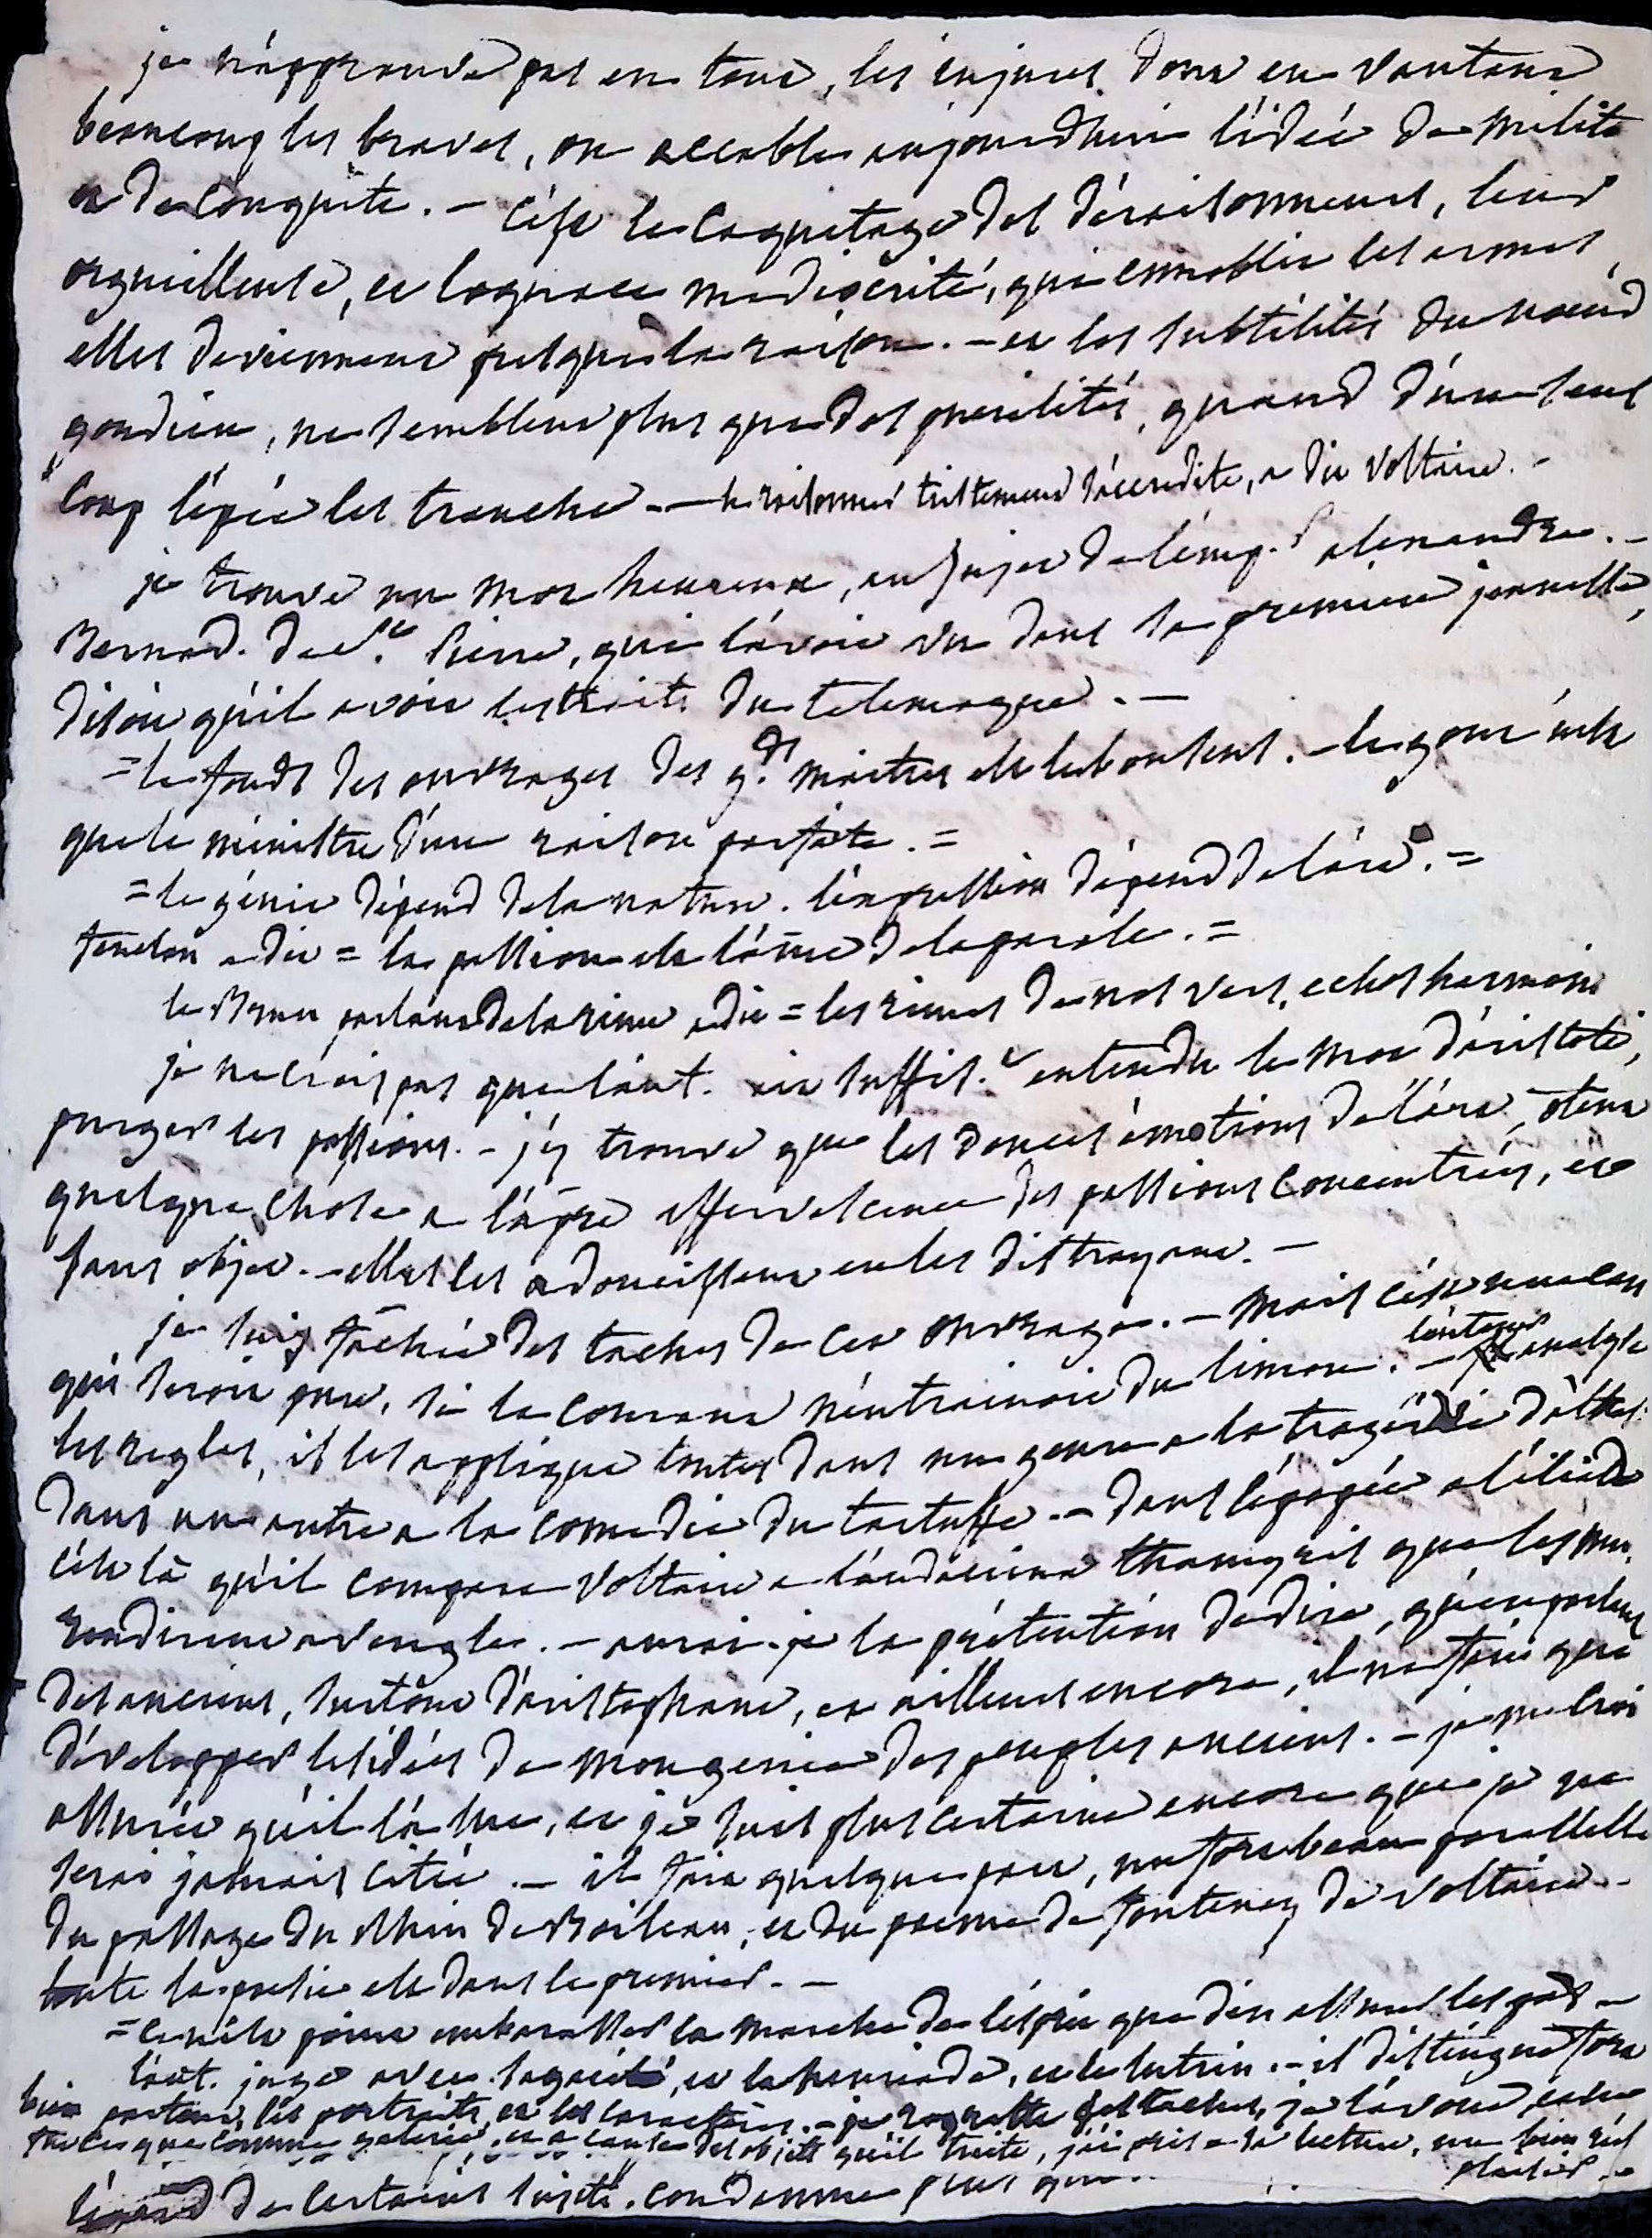 je n'approuve pas en tout, les injures dont en vantant
beaucoup les braves, on accable aujourdhui l'idée de milite
et de conquête. - c'est le caquetage des déraisonneurs, leur
orgueilleuse, et loquace mediocrité, qui ennoblit les armes,
elles deviennent presque la raison. - et les subtilités du noeud
gordien, ne semblent plus que des puerilités, quand d'un seul
coup l'épée les tranche. - le raisonner tristement s'accredite, a dit Voltaire. -
je trouve un mot heureux, au sujet de l'emp.r alexandre. -
Bernard. de St. Pierre, qui l'avoit vu dans sa premiere jeunesse,
disoit qu'il avoit les traits du telemaque. -
= le fonds des ouvrages des g.ds maitres est le bon sens. - le gout n'est
que le ministre d'une raison parfaite. =
= le génie dépend de la nature. l'expression dépend de l'art. =
fenelon a dit = la passion est l'âme de la parole. =
le Brun parlant de la rime a dit = les rimes de nos vers, echos harmoni
je ne crois pas que l'aut. ait suffis.t entendu le mot d'aristote,
purger les passions. - j'y trouve que les douces émotions de l'art, otent
quelque chose a l'âpre effervescence des passions concentrées, et
sans objet. - elles les adoucissent en les distrayant. -
je suis fâchée des taches de cet ouvrage. - mais c'est une eau
qui seroit pure, si le courant n'entrainoit du limon. - l'auteur analyse
les regles, il les applique toutes dans un genre a la tragédie d'athal.
dans un autre a la comedie du tartuffe. - dans l'épopée a l'iliade
c'est là qu'il compare Voltaire a l'audacieux thamyris que les mu.
rendirent aveugle. - aurai-je la prétention de dire, qu'en parlant
des anciens, surtout d'aristophane, et ailleurs encore, il ne fait que
développer les idées de mon genie des peuples anciens. - je me crois
assurée qu'il l'a lu, et je suis plus certaine encore que je ne
serai jamais citée. - il fait quelque part, un fort beau parallelle
du passage du Rhin de Boileau, et du poeme de fontenoy de Voltaire. -
toute la poesie est dans le premier. -
= ce n'est point embarasser la marche de l'esprit que d'en assurer les pas -
l'aut. juge avec sagacité, et la henriade, et le lutrin. - il distingue fort
bien partout, les portraits, et les caractères. - je regrette des taches, je l'avoue,
que comme galerie, et a cause des objets qu'il traite, j'ai pris a sa lecture, un bien réel
plaisir. -
de certains sujets. condamne plus que